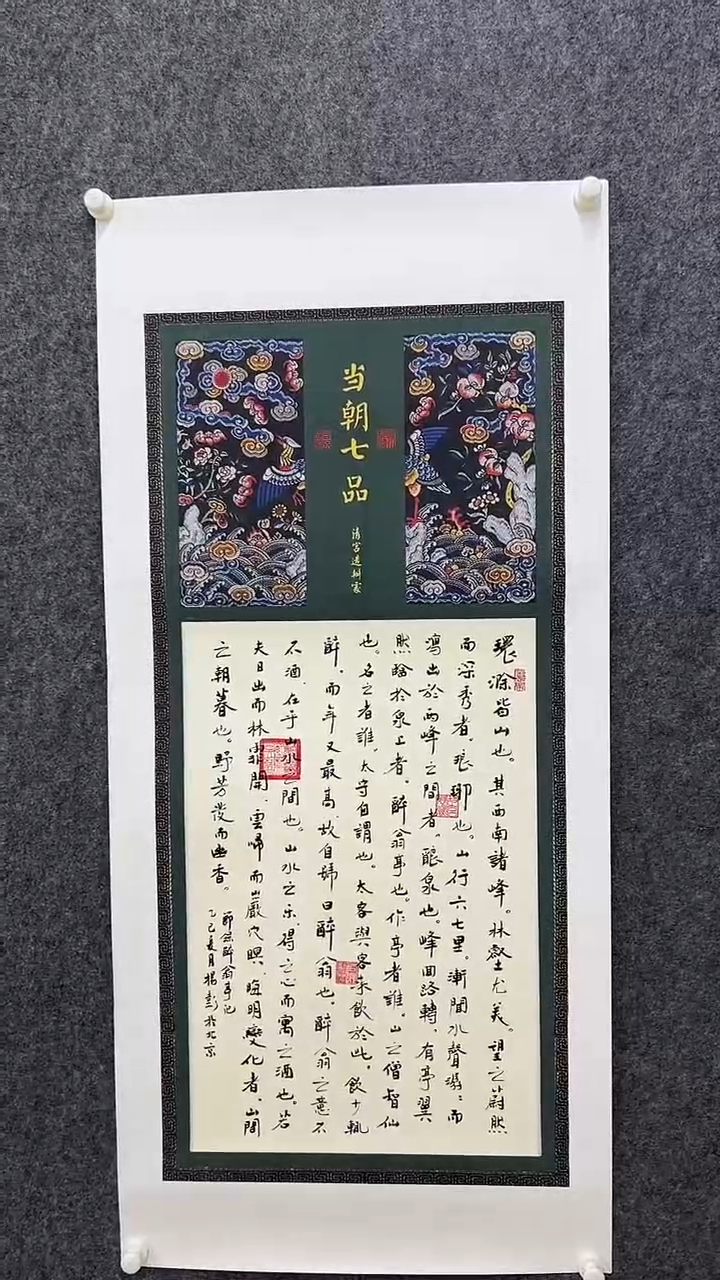 当朝七品
清宫造辦處
環滁皆山也。其西南諸峰。林壑尤美。望之蔚然
而深秀者。琅琊也。山行六七里。漸聞水聲潺〻而
瀉出於兩峰之間者。釀泉也。峰回路轉、有亭翼
然臨於泉上者。醉翁亭也。作亭者誰、山之僧智仙
也。名之者誰。太守自謂也。太客與客来飲於此、飲少輒
醉、而年又最高、故自號曰醉翁也。醉翁之意不
不酒、在乎山水之間也。山水之乐、得之心而寓之酒也。若
夫日出而林霏開、雲歸而巖穴暝、晦明變化者、山間
之朝暮也。野芳發而幽香。
節錄醉翁亭记
乙巳夏月楊彭於北京